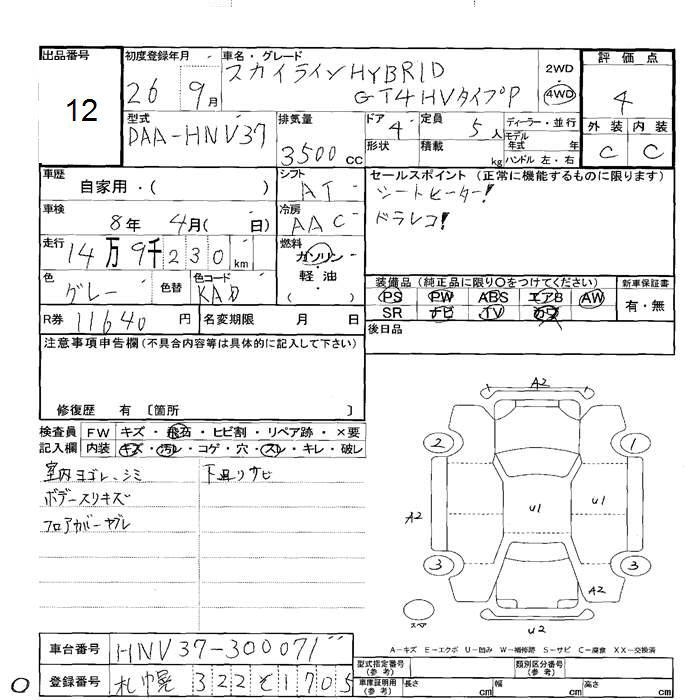 出品番号
12
初度登録年月
26 9月
車名・グレード
スカイラインHYBRID
GT4HVタイプP
2WD
4WD
評価点
4
外装 内装
C C
型式
DAA-HNV37
排気量
3500cc
ドア
4
定員
5人
形状
積載
kg
ディーラー・並行
モデル年式 年
ハンドル 左・右
車歴
自家用・( )
シフト
AT
セールスポイント (正常に機能するものに限ります)
シートヒーター!
ドラレコ!
車検
8年 4月( 日)
冷房
AAC
走行
14万9千230km
燃料
ガソリン
軽・油
( )
色
グレー
色替
色コード
KAD
装備品 (純正品に限り〇をつけてください)
新車保証書
PS PW ABS エアB AW
SR ナビ TV カワ
有・無
R券
11640円
名変期限 月 日
後日品
注意事項申告欄(不具合内容等は具体的に記入して下さい)
修復歴 有 〔箇所 〕
検査員
記入欄
FW キズ・飛石・ヒビ割・リペア跡・×要
内装 キズ・汚レ・コゲ・穴・スレ・キレ・破レ
室内ヨゴレ、シミ
下廻リサビ
ボデースリキズ
フロアカバーヤブレ
A2
2
1
A2
U1
U1
3
3
A2
スペア
U2
A-キズ E-エクボ U-凹み W-補修跡 S-サビ C-腐食 XX-交換済
車台番号
HNV37-300071
登録番号
札幌 322 そ 1705
型式指定番号
(参考)
類別区分番号
(参考)
車庫証明用
(参考)
長さ cm
幅 cm
高さ cm